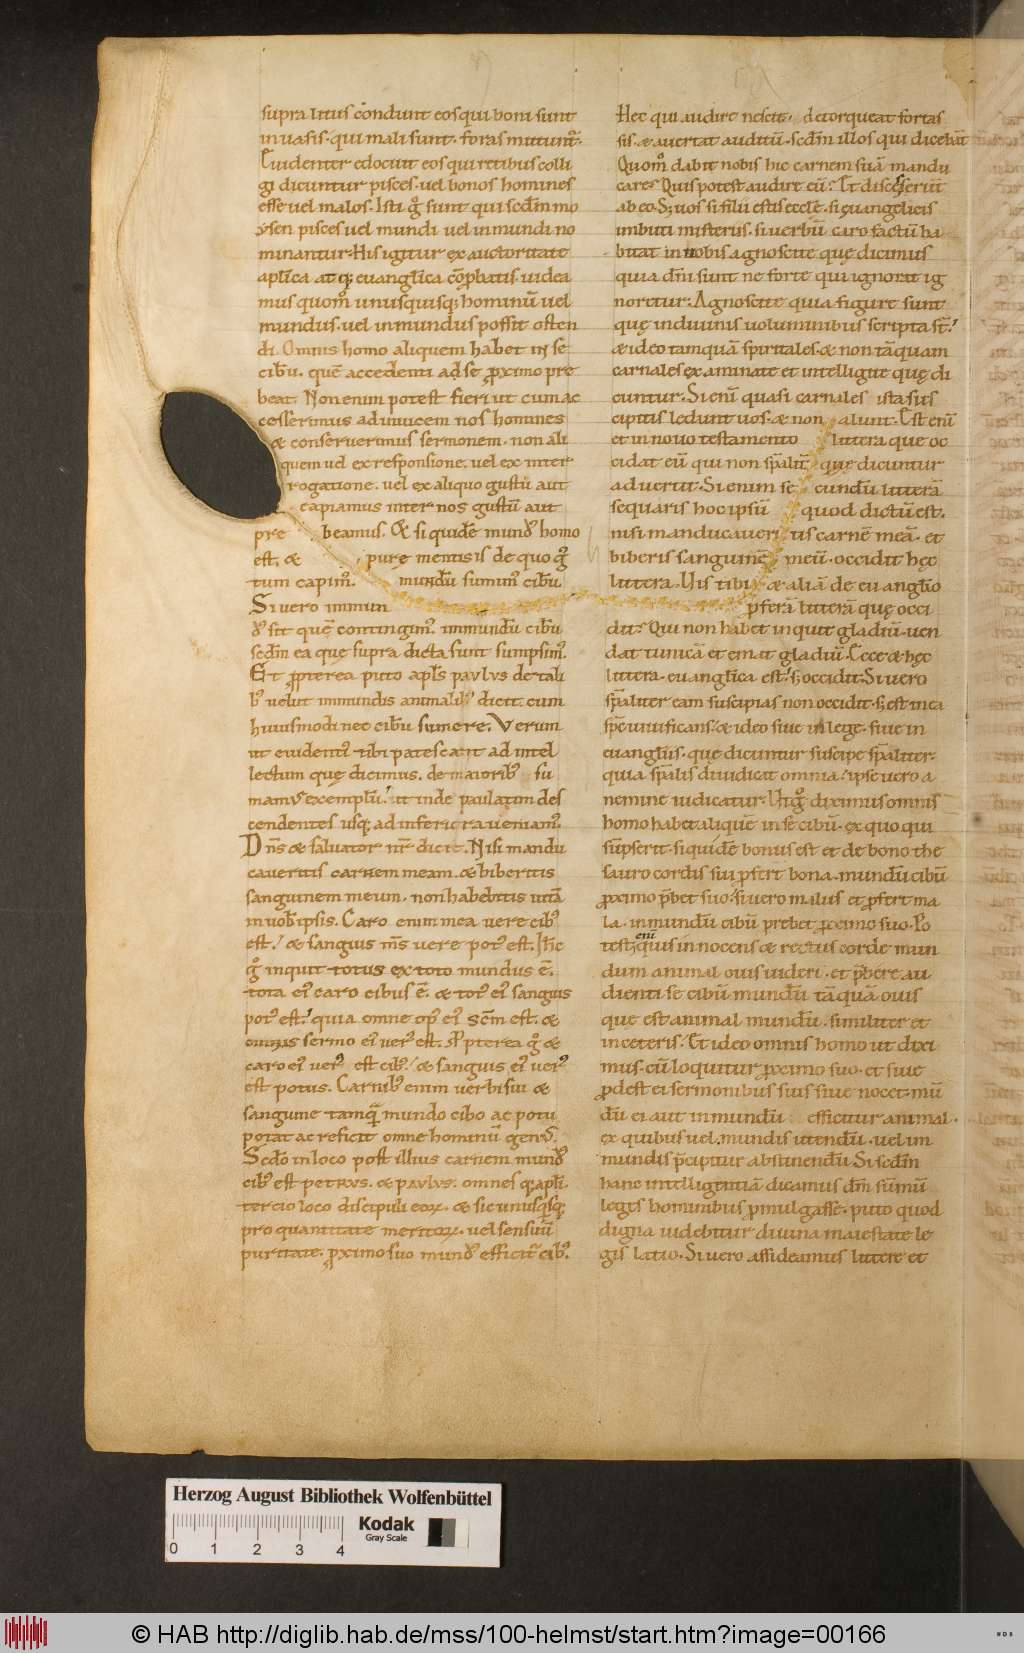 supra litus condunt eos qui boni sunt
in uasis. qui mali sunt. foras mittunt̃.
Euidenter edocuit eos qui retibus colli
gi dicuntur pisces. uel bonos homines
esse uel malos. Isti g̊ sunt qui scd̃m mo
ysen pisces uel mundi uel inmundi no
minantur. His igitur ex auctoritate
aplica atq; euanglica cõprobatis. uidea
mus quom̊ unusquisq; hominũ uel
mundus. uel inmundus possit osten
di. Omnis homo aliquem habet in se
cibũ. quẽ accedenti ad se proximo pre
beat. Non enim potest fieri ut cum ac
cesserimus adinuicem nos homines
& conseruerimus sermonem. non ali
quem uel ex responsione. uel ex inter
rogatione. uel ex aliquo gustũ aut
capiamus inter nos gustũ aut
pre beamus. & si quidẽ mund' homo
est. & purę mentis is de quo g̊
tum capim'. mundũ sumim' cibũ
Si uero inmun
d' sit quẽ contingim'. inmundũ cibũ
scd̃m ea quę supra dicta sunt sumpsim'.
Et propterea puto apl̃s paulus de tali
b' uelut inmundis animalib' dicit. cum
huiusmodi nec cibũ sumere. Verum
ut euidenti' tibi patescat ad intel
lectum quę dicimus. de maiorib' su
mam' exemplũ. ut inde paulatim des
cendentes usq; ad inferiora ueniam'.
Dñs & saluator nr̃ dicit. Nisi mandu
caueritis carnem meam. & biberitis
sanguinem meum. non habebitis uitã
in uob' ipsis. Caro enim mea uere cib'
est. & sanguis m̃s uere pot' est. Ih̃c
g̊ inquit totus ex toto mundus ẽ.
tota ei' caro cibus ẽ. & tot' ei' sanguis
pot' est. quia omne op' ei' sc̃m est. &
omnis sermo ei' uer' est. Propterea g̊ &
caro ei' uer' est cib'. & sanguis ei' uer'
est potus. Carnib' enim uerbi sui &
sanguine tamquã mundo cibo ac potu
potat ac reficit omne hominũ gen'.
Scd̃o in loco post illius carnem mund'
cib' est petrus. & paulus. omnesq; apl̃i
tercio loco discipuli eorum. & sic unusq̃sq;
pro quantitate meritorum. uel sensuũ
puritate. proximo suo mund' efficit̃ cib'.
Hec qui audire nescit. detorqueat fortas
sis. & auertat auditũ. scd̃m illos qui dicebãt
Quom̊ dabit nobis hic carnem suã mandu
care? Quis potest audire eũ? Et discesserunt
ab eo. S; uos si filii estis eccl̃e. si euangelicis
imbuti misteriis. si uerbũ caro factũ ha
bitat in nobis agnoscite quę dicimus
quia dñi sunt ne forte qui ignorat ig
noretur. Agnoscite quia figurę sunt
quę in diuinis uoluminibus scripta st̃.
& ideo tamquã spiritales. & non tãquam
carnales examinate et intelligite quę di
cuntur. Si enĩ quasi carnales ista sus
cipitis ledunt uos. & non alunt. Est enĩ
et in nouo testamento littera que oc
cidat eũ qui non sp̃alit̃ quę dicuntur
aduertit. Si enim se cundũ litterã
sequaris hoc ipsũ quod dictũ est.
nisi manducaueri tis carnẽ meã. et
biberis sanguinẽ meũ. occidit hęc
littera. Uis tibi & aliã de euanglio
proferã litterã quę occi
dit? Qui non habet inquit gladiũ. uen
dat tunicã et emat gladiũ. Ecce & hęc
littera. euanglica est. s; occidit. Si uero
sp̃aliter eam suscipias non occidit. s; est in ea
sp̃c uiuificans. & ideo siue in lege. siue in
euangliis. que dicuntur suscipe sp̃aliter.
quia sp̃alis diiudicat omnia. ipse uero a
nemine iudicatur. Ut g̊ diximus omnis
homo habet aliquẽ in se cibũ. ex quo qui
sũpserit. siquidẽ bonus est et de bono the
sauro cordis sui profert bona. mundũ cibũ
proximo p̃bet suo. si uero malus et profert ma
la. inmundũ cibũ prebet proximo suo. Po
test enĩ quis innocens & rectus corde mun
dum animal ouis uideri. et p̃bere au
dienti se cibũ mundũ tãquã ouis
que est animal mundũ. similiter et
in ceteris. Et ideo omnis homo ut dixi
mus. cũ loquitur proximo suo. et siue
prodest ei sermonibus suis siue nocet. mũ
dũ ei aut inmundũ efficitur animal.
ex quibus uel mundis utendũ. uel in
mundis p̃cipitur abstinendũ. Si scd̃m
hanc intelligentiã dicamus dm̃ sũmũ
leges hominibus promulgasse. puto quod
digna uidebitur diuina maiestate le
gis latio. Si uero assideamus littere et
Herzog August Bibliothek Wolfenbüttel
Kodak
Gray Scale
0 1 2 3 4
© HAB http://diglib.hab.de/mss/100-helmst/start.htm?image=00166